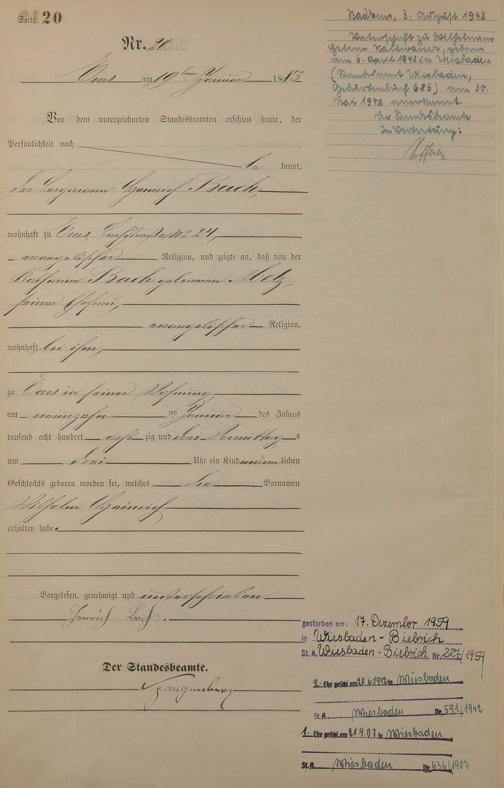 Seite 20
Nr. 20
Ems am 19ten Januar 1883
Vor dem unterzeichneten Standesbeamten erschien heute, der
Persönlichkeit nach
be kannt,
der Bergmann Heinrich Bach,
wohnhaft zu Ems, No 24,
evangelischer Religion, und zeigte an, daß von der
Bach geborenen Metz,
seiner Ehefrau,
evangelischer Religion,
wohnhaft bei ihm,
zu Ems in seiner Wohnung,
am neunzehn ten Januar des Jahres
tausend acht hundert acht zig und drei Vormittags
um drei Uhr ein Kind männlichen
Geschlechts geboren worden sei, welches die Vornamen
Wilhelm Heinrich
erhalten habe.
Vorgelesen, genehmigt und unterschrieben
Heinrich Bach.
Der Standesbeamte.
3. August 1948
Vaterschaft zu
geboren
am 6. April 1942 in Wiesbaden
(Standesamt Wiesbaden,
Geburtenbuch 685) am 30.
Mai 1948 anerkannt.
Der Standesbeamte
In Vertretung:
gestorben am: 17. Dezember 1959
in Wiesbaden-Biebrich
St. A. Wiesbaden-Biebrich Nr. 227/1959
2. Ehe geschl. am 20.6.1942 in Wiesbaden
St. A. Wiesbaden Nr. 591/1942
1. Ehe geschl. am 21.9.07 in Wiesbaden
St. A. Wiesbaden Nr. 636/1907